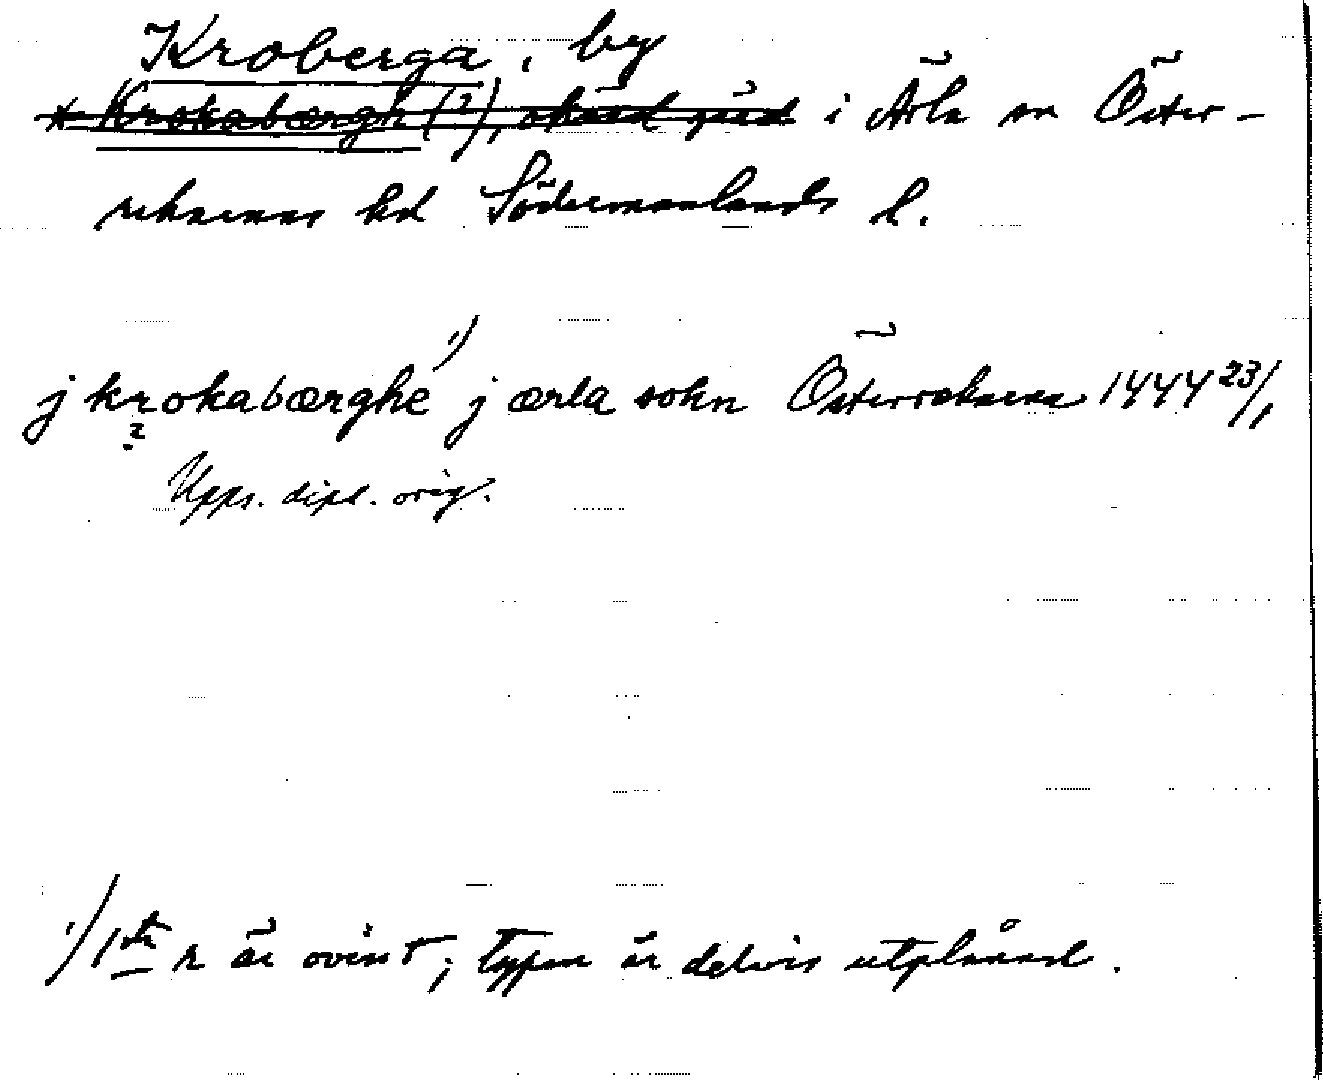 Kroberga, by
* Krokabærgh (?), okänd gård i Ärla sn Öster-
rekarnes hd Södermanlands l.
j krokabærghe 1) j ærla sokn Österrekarne 1444 23/1
?
Upps. dipl. orig.
1) 1sta r är ovisst; typen är delvis utplånad.